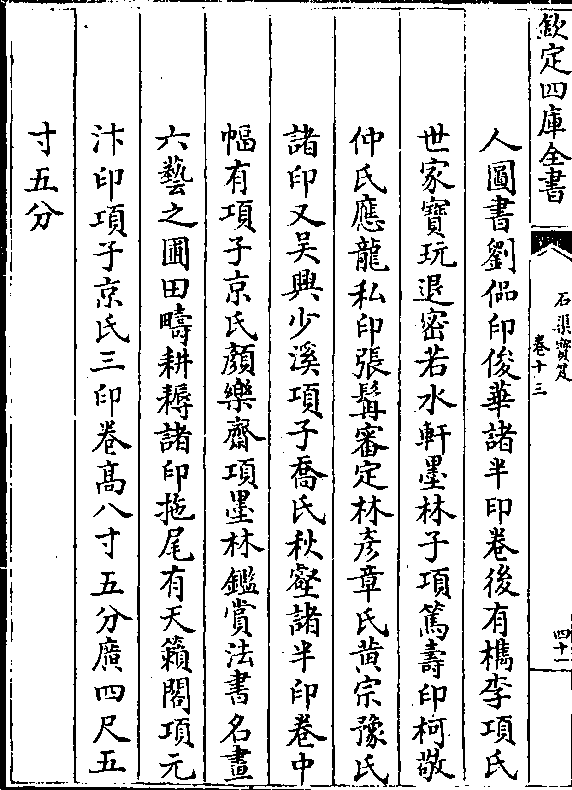 欽定四庫全書
石渠寶笈
卷十三
四十一
人圖書劉侣印俊華諸半印卷後有檇李項氏
世家寶玩退密若水軒墨林子項篤壽印柯敬
仲氏應龍私印張髯審定林彥章氏黄宗豫氏
諸印又吴興少溪項子喬氏秋壑諸半印卷中
幅有項子京氏顔樂齋項墨林鑑賞法書名畫
六藝之圃田疇耕耨諸印拖尾有天籟閣項元
汴印項子京氏三印卷髙八寸五分廣四尺五
寸五分